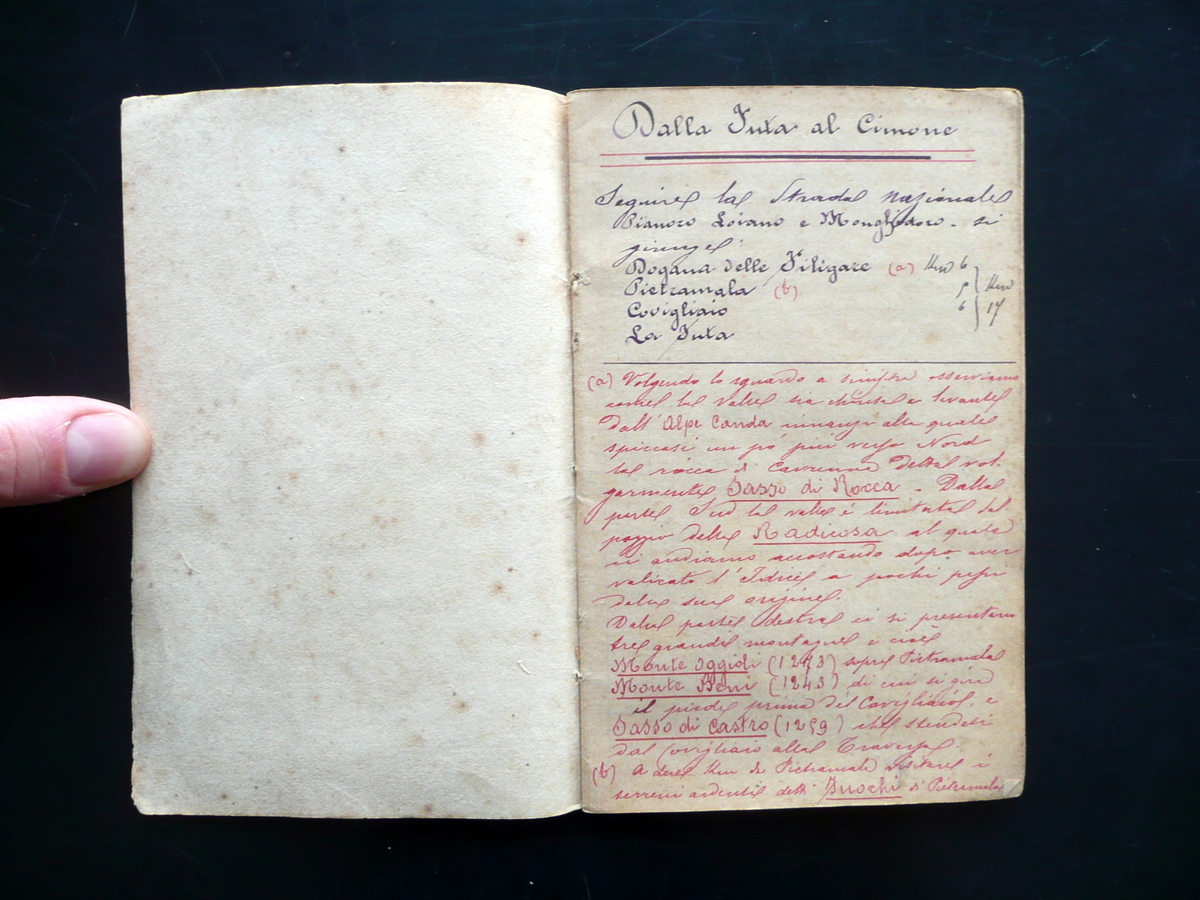 Dalla Futa al Cimone
Seguire la Strada nazionale
Pianoro Loiano e Monghidoro - si
giunge
Dogana delle Filigare (a) Km 6
Pietramala (b) 5 Km
Covigliaio 6 17
La Futa
(a) Volgendo lo sguardo a sinistra osserviamo
come la valle sia chiusa a levante
dall'Alpe Canda innanzi alla quale
spiccasi un po' più verso Nord
la rocca di Cavrenna detta vol-
garmente Sasso di Rocca - Dalla
parte Sud la valle è limitata dal
poggio della Radicosa al quale
ci andiamo accostando dopo aver
valicato l'Idice a pochi passi
dalla sua origine.
Dalla parte destra ci si presentano
tre grandi montagne e cioè
Monte Oggioli (1293) sopra Pietramala
Monte Beni (1243) di cui si gira
il piede prima del Covigliaio, e
Sasso di Castro (1259) che stendesi
dal Covigliaio alla Traversa.
(b) A due Km da Pietramala visitare i
terreni ardenti detti Fuochi di Pietramala